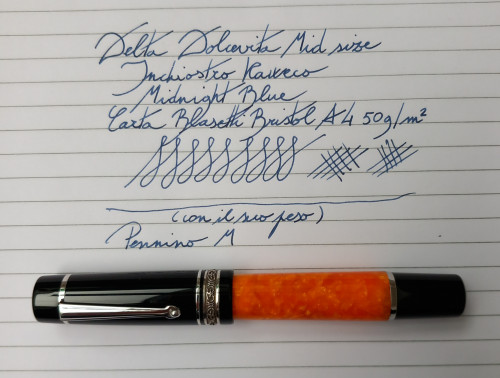 Delta Dolcevita Mid size
Inchiostro Kaweco
Midnight Blue
Carta Blasetti Bristol A4 50g/m²
(con il suo peso)
Pennino M